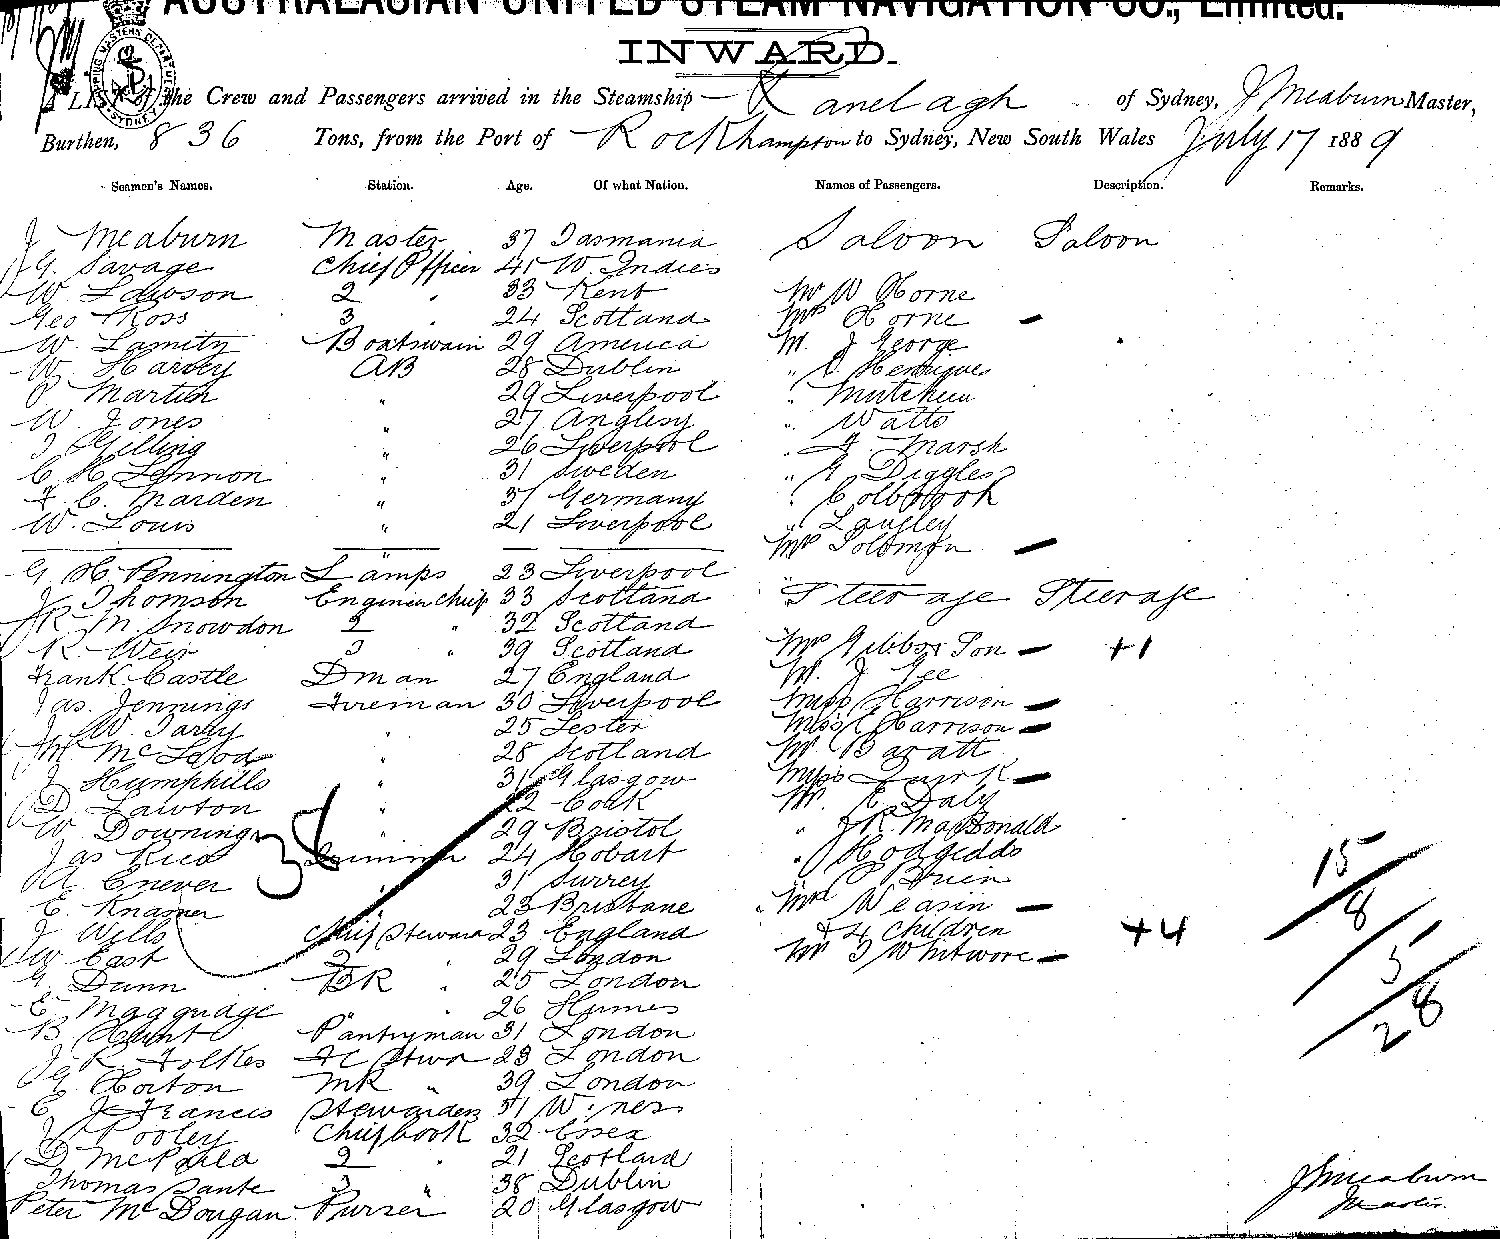 AUSTRALASIAN UNITED STEAM NAVIGATION CO., Limited.
INWARD.
A LIST of the Crew and Passengers arrived in the Steamship Ranelagh of Sydney, J Meaburn Master,
Burthen, 836 Tons, from the Port of Rockhampton to Sydney, New South Wales July 17 1889
Seamen's Names. Station. Age. Of what Nation. Names of Passengers. Description. Remarks.
J Meaburn Master 37 Tasmania Saloon Saloon
G. Savage Chief Officer 41 W. Indies
W. Lawson 2 " 33 Kent Mr W Horne
Geo Ross 3 " 24 Scotland Mrs Horne –
W. Lamity Boatswain 29 America M. J George
W. Harvey AB 28 Dublin " Henriques
P Martin " 29 Liverpool "
W. Jones " 27 Anglesy " Watts
J Gilling " 26 Liverpool " F. Marsh
C H Lennon " 31 Sweden " G Diggles
F. C. Marden " 37 Germany " Colbrook
W. Louis " 21 Liverpool " Langley
Mrs Solomon –
G H Pennington Lamps 23 Liverpool
J Thomson Engineer Chief 33 Scotland Steerage Steerage
R M Snowdon 2 " 32 Scotland
R. Weir 3 " 39 Scotland Mrs Gibbs & Son – +1
Frank Castle Dman 27 England M. J Gee
Jas. Jennings Fireman 30 Liverpool Miss Harrison –
J W. Tardy " 25 Lester Miss C Harrison –
M McLeod " 28 Scotland Mr Baratt
J Humphills " 31 Glasgow Miss Quirk –
D. Lawton " 22 Cork Mr. E Daly
W Downing " 29 Bristol " J R. MacDonald
38
Jas Rice 24 Hobart " Hodgedds
A Enever " 31 Surrey " O Brien
E. Knamer 23 Brisbane Mrs Weasin –
J Wells Chief Steward 23 England & 4 Children +4
W East 2 " 29 London Mr J Whitmore –
G. Dunn BR " 25 London
E Maggudge " 26 Humes
B Hunt Pantryman 31 London
J R. Folkes FC Stwd 23 London
G Horton MR " 39 London
E J Francis Stewardess 31
J Pooley Chief Cook 32 Essex
D 2 " 21 Scotland
Thomas Sante 3 " 38 Dublin
Peter McDougan Purser 20 Glasgow
15
8
5
28
J Meaburn
Master